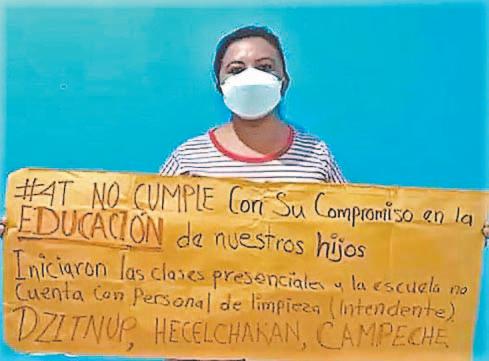 #4T NO CUMPLE Con Su Compromiso en la
EDUCACIÓN de nuestros hijos
Iniciaron las clases presenciales y la escuela no
Cuenta Con Personal de limpieza (Intendente)
DZITNUP, HECELCHAKAN, CAMPECHE